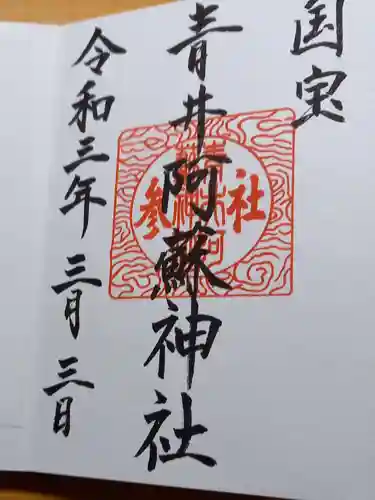 国宝
青井阿蘇神社
参社
令和三年三月三日